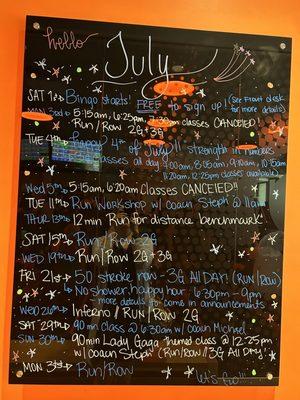 hello
July
SAT 1st → Bingo starts! FREE to sign up! (See Front desk for more details)
MON 3rd → 5:15am, 6:25am, 7:30am classes CANCELED!
Run / Row 2G+3G
TUE 4th → happy 4th of July!! strength in numbers
classes all day
(7:00am, 8:05am, 9:10am, 10:15am
11:20am, 12:25pm classes available)
WED 5th → 5:15am, 6:20am CLASSES CANCELED!!
TUE 11th → Run Workshop w/ Coach Steph @ 11am
THUR 13th → 12 min Run for distance benchmark!
SAT 15th → Run/Row 2G
WED 19th → Run/Row 2G+3G
FRI 21st → 50 stroke row - 3G All DAY! (RUN/ROW)
No shower happy hour 6:30pm - 9pm
more details to come in announcements
WED 26th → Inferno // RUN/ROW 2G
SAT 29th → 90 min class @ 6:30am w/ coach Michael
SUN 30th → 90min Lady Gaga themed class @ 12:25pm
w/ coach Steph (Run/Row // 3G All DAY)
MON 31st → Run/Row
let's go!!!